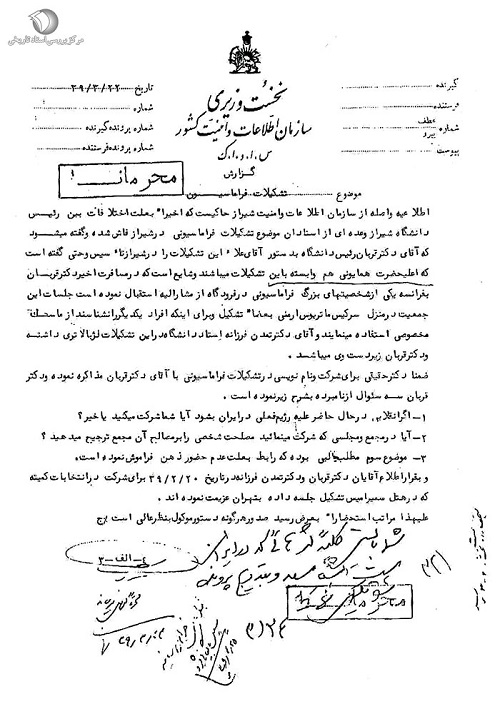 مرکز بررسی اسناد تاریخی
نخست وزیری
سازمان اطلاعات و امنیت کشور
س.ا.و.ا.ک
گزارش
گیرنده
فرستنده
شماره عطف
پیرو
پیوست
تاریخ ۳۹/۳/۲۲
شماره
شماره پرونده گیرنده
شماره پرونده فرستنده
محرمانه
موضوع تشکیلات فراماسیون
اطلاعیه واصله از سازمان اطلاعات وامنیت شیراز حاکیست که اخیرا" بعلت اختلافات بین رئیس
دانشگاه شیراز وعده ای از استادان موضوع تشکیلات فراماسیونی درشیراز فاش شده وگفته میشود
که آقای دکترقربان رئیس دانشگاه بد ستور آقای علاء این تشکیلات را درشیراز تاء سیس وحتی گفته است
که اعلیحضرت همایونی هم وابسته باین تشکیلات میباشند وشایع است که درمسافرت اخیر دکترقربان
بفرانسه یکی ازشخصیتهای بزرگ فراماسیونی درفرودگاه از مشارالیه استقبال نموده است جلسات این
جمعیت درمنزل سرکیس ماتریوس ارمنی بعضا" تشکیل وبرای اینکه افراد یکدیگررا بشناسند از ماسک
مخصوصی استفاده مینمایند وآقای دکترتمدن فرزانه استاد دانشگاه دراین تشکیلات لژ بالاتری داشته
ودکترقربان زیردست وی میباشد.
ضمنا دکترحقیقی برای شرکت ونام نویسی درتشکیلات فراماسیونی با آقای دکترقربان مذاکره نموده ودکتر
قربان سه سئوال ازنامبرده بشرح زیرنموده است.
۱- اگرانقلابی درحال حاضرعلیه رژیم فعلی درایران بشود آیا شما شرکت میکنید یا خیر؟
۲- آیا درمجمع ومجلسی که شرکت مینمائید مصلحت شخصی را برمصالح آن مجمع ترجیح میدهید؟
۳- موضوع سوم مطلب جالبی بوده که رابط بعلت عدم حضور ذهن فراموش نموده است.
وبقرار اطلاع آقایان دکترقربان ودکترتمدن فرزانه درتاریخ ۳۹/۲/۲۰ برای شرکت درانتخابات کمیته
که درهتل سمیرامیس تشکیل جلسه داده بتهران عزیمت نموده اند.
علیهذا مراتب استحضارا" بعرض رسید صدورهرگونه دستورموکول بنظرعالی است
۴-الف-۳
۳/۲۴